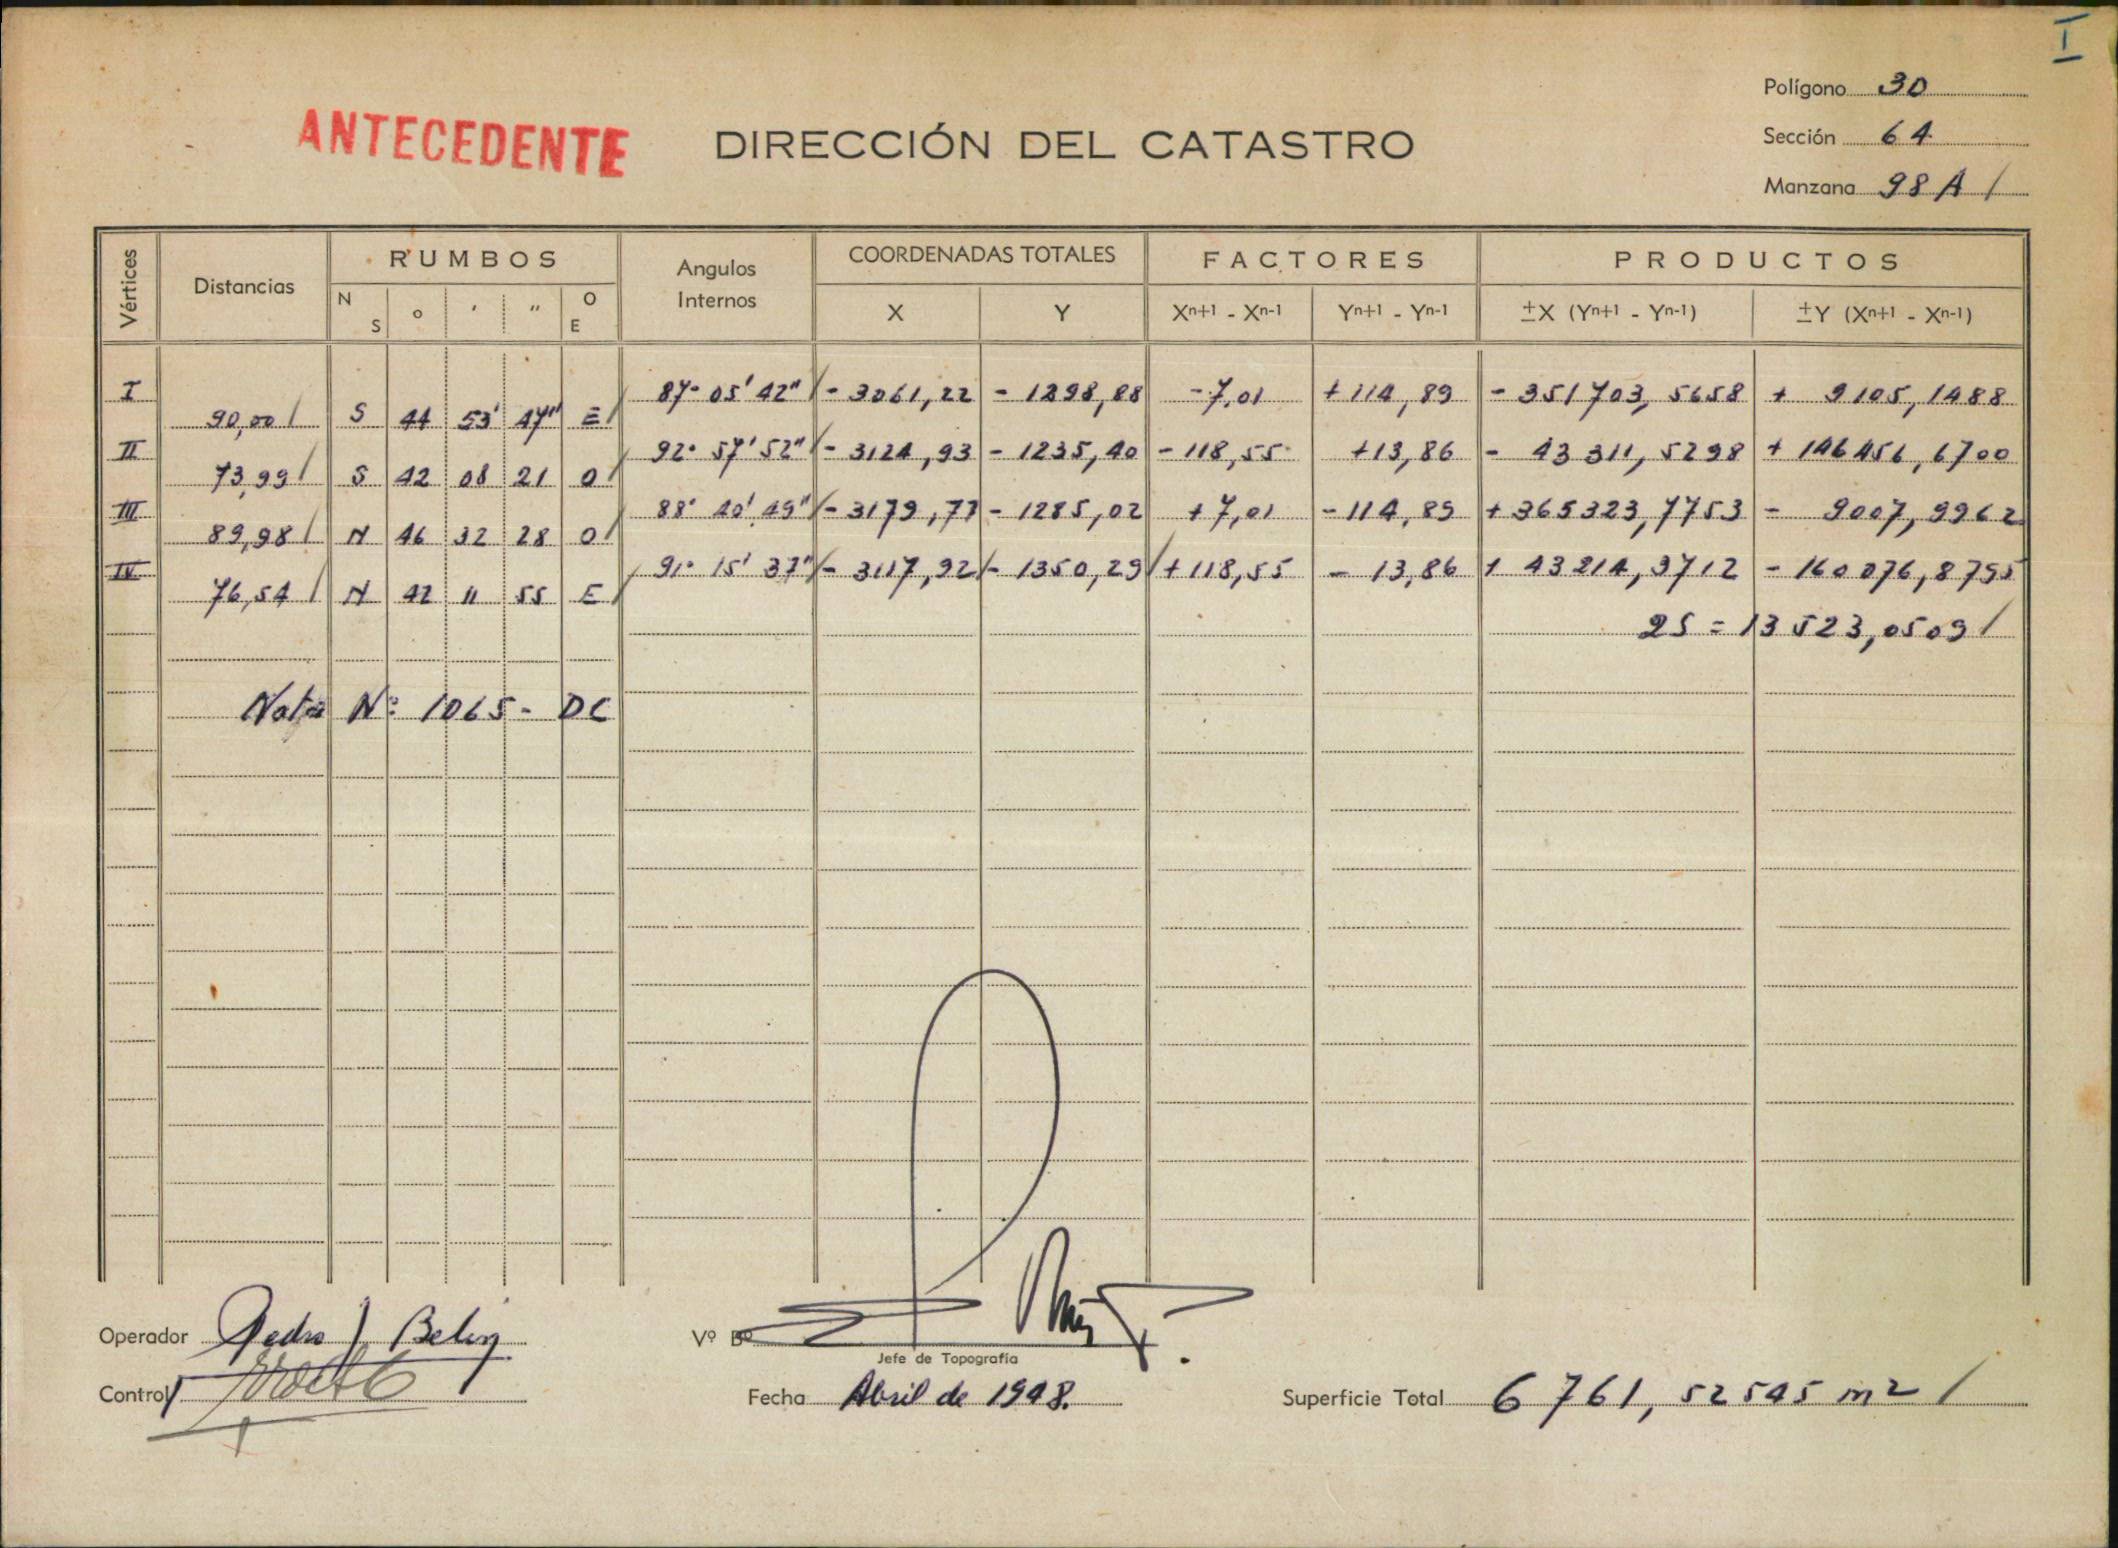 I
Polígono 30
ANTECEDENTE DIRECCIÓN DEL CATASTRO
Sección 64
Manzana 98 A /
Vértices Distancias RUMBOS Angulos Internos COORDENADAS TOTALES FACTORES PRODUCTOS
N S o ' " O E X Y Xn+1 - Xn-1 Yn+1 - Yn-1 ±X (Yn+1 - Yn-1) ±Y (Xn+1 - Xn-1)
I 87° 05' 42" - 3061,22 - 1298,88 -7,01 +114,89 - 351703,5658 + 9105,1488
90,00 S 44 53' 47" E
II 92° 57' 52" - 3124,93 - 1235,40 - 118,55 +13,86 - 43311,5298 + 146456,6700
73,99 S 42 08 21 O
III 88° 40' 49" - 3179,77 - 1285,02 +7,01 - 114,89 + 365323,7753 - 9007,9962
89,98 N 46 32 28 O
IV 91° 15' 37" - 3117,92 - 1350,29 + 118,55 - 13,86 + 43214,3712 - 160076,8795
76,54 N 42 11 55 E
2S = 13523,0509 /
Nota Nº 1065 - DC
Operador Pedro J Belin
Vº Bº
Jefe de Topografía
Control
Fecha Abril de 1948.
Superficie Total 6761,52545 m2 /